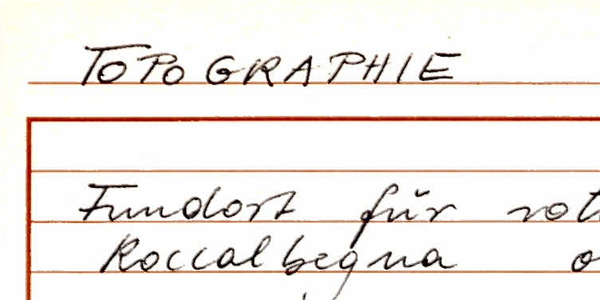 TOPOGRAPHIE
Fundort für
Roccalbegna